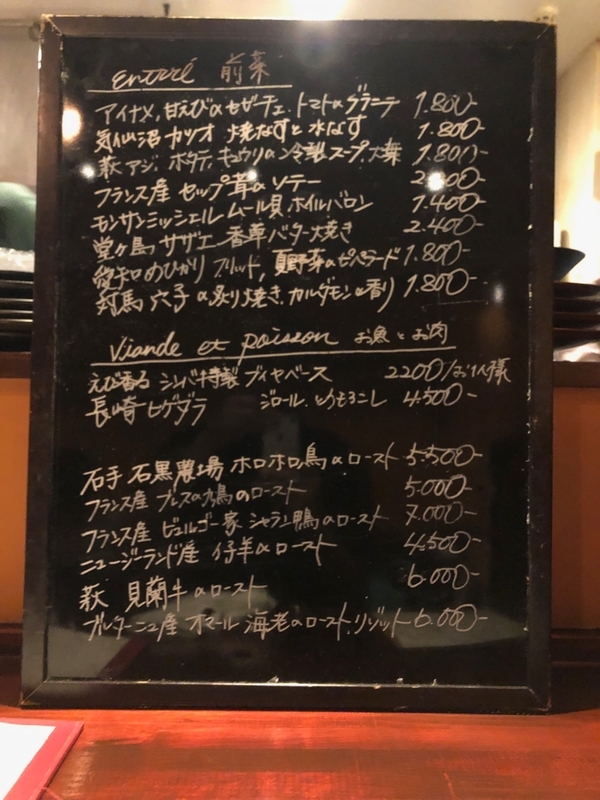 Entrré 前菜
アイナメ、甘えびのセビーチェ、トマトのグラニテ 1.800-
気仙沼 カツオ 焼なすと水なす 1.800-
萩 アジ ホタテ、キュウリの冷製スープ、大葉 1.800-
フランス産 セップ茸のソテー
モンサンミッシェル ムール貝、ホイルバロン 1.400-
堂ヶ島 サザエ 香草バター焼き 2.400-
愛知 めひかり フリット、夏野菜のピペラード 1.800-
対馬 穴子の炙り焼き、カルダモンの香り 1.800-
Viande et poisson お魚とお肉
えび香る シンバ特製 ブイヤベース 2200/お1人様
長崎 ヒゲダラ ジロール、とうもろこし 4.500-
石黒農場 ホロホロ鳥のロースト 5.500-
フランス産 ブレスの鳩のロースト 5.000-
フランス産 ビュルゴー家 シャラン鴨のロースト 7.000-
ニュージーランド産 仔羊のロースト 4.500-
萩 見蘭牛のロースト 6.000-
ブルターニュ産 オマール海老のロースト、リゾット 6.000-